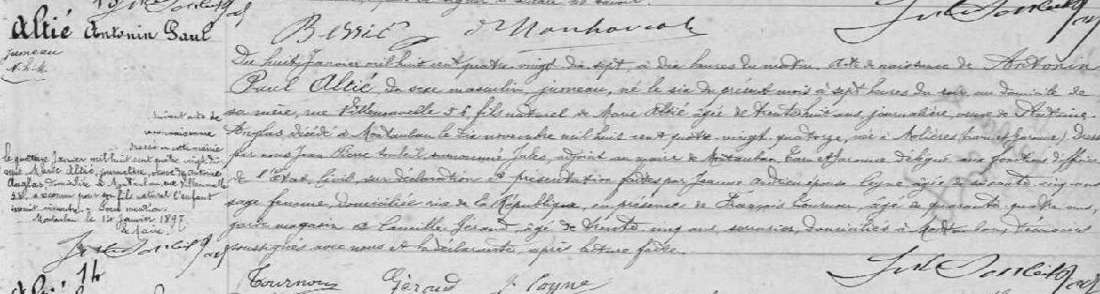 Altié Antonin Paul
jumeau
N. L. N.
Suivant acte de
reconnaissance
dressé à cette mairie
le quatorze Janvier mil huit cent quatre vingt dix
sept Marie Altié, journalière, veuve de Antoine
Anglas domiciliée à Montauban rue Villenouvelle
56 a reconnu pour son fils naturel l'enfant
inscrit
Montauban le 14 Janvier 1897
Le Maire
Du huit Janvier mil huit cent quatre vingt dix sept, à dix heures du matin. Acte de naissance de Antonin
Paul Altié du sexe masculin, jumeau, né le six du présent mois à sept heures du soir au domicile de
sa mère, rue Villenouvelle 56 fils naturel de Marie Altié âgée de trente huit ans, journalière, veuve de Antoine
Anglas décédé à Montauban le dix novembre mil huit cent quatre vingt quatorze, née à Molières (Tarn et Garonne) Dressé
par nous Jean Pierre surnommé Jules, adjoint au maire de Montauban, Tarn et Garonne délégué aux fonctions d'officier
de l'Etat Civil, sur déclaration et présentation faites par Jeanne épouse Coyne âgée de soixante cinq ans
sage femme, domiciliée rue de la République, en présence de François Tournou âgé de quarante quatre ans,
garde magasin et Camille Géraud âgé de trente cinq ans, domiciliés à Montauban, témoins
soussignés avec nous et la déclarante, après lecture faite.
Tournou Géraud J. Coyne
Altié